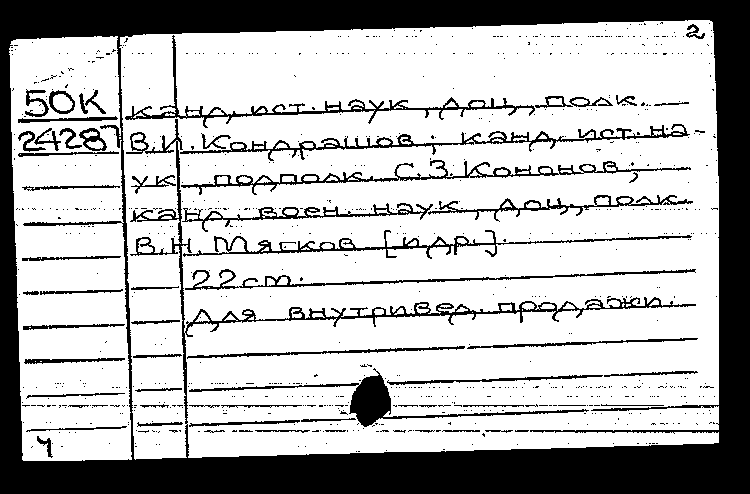 2
50К канд. ист. наук, доц., полк.
24287 В.И. Кондрашов; канд. ист. на-
ук, подполк. С.З. Кононов;
канд. воен. наук, доц., полк.
В.Н. Мягков [и др.].
22 cm.
Для внутривед. продажи.
Ч